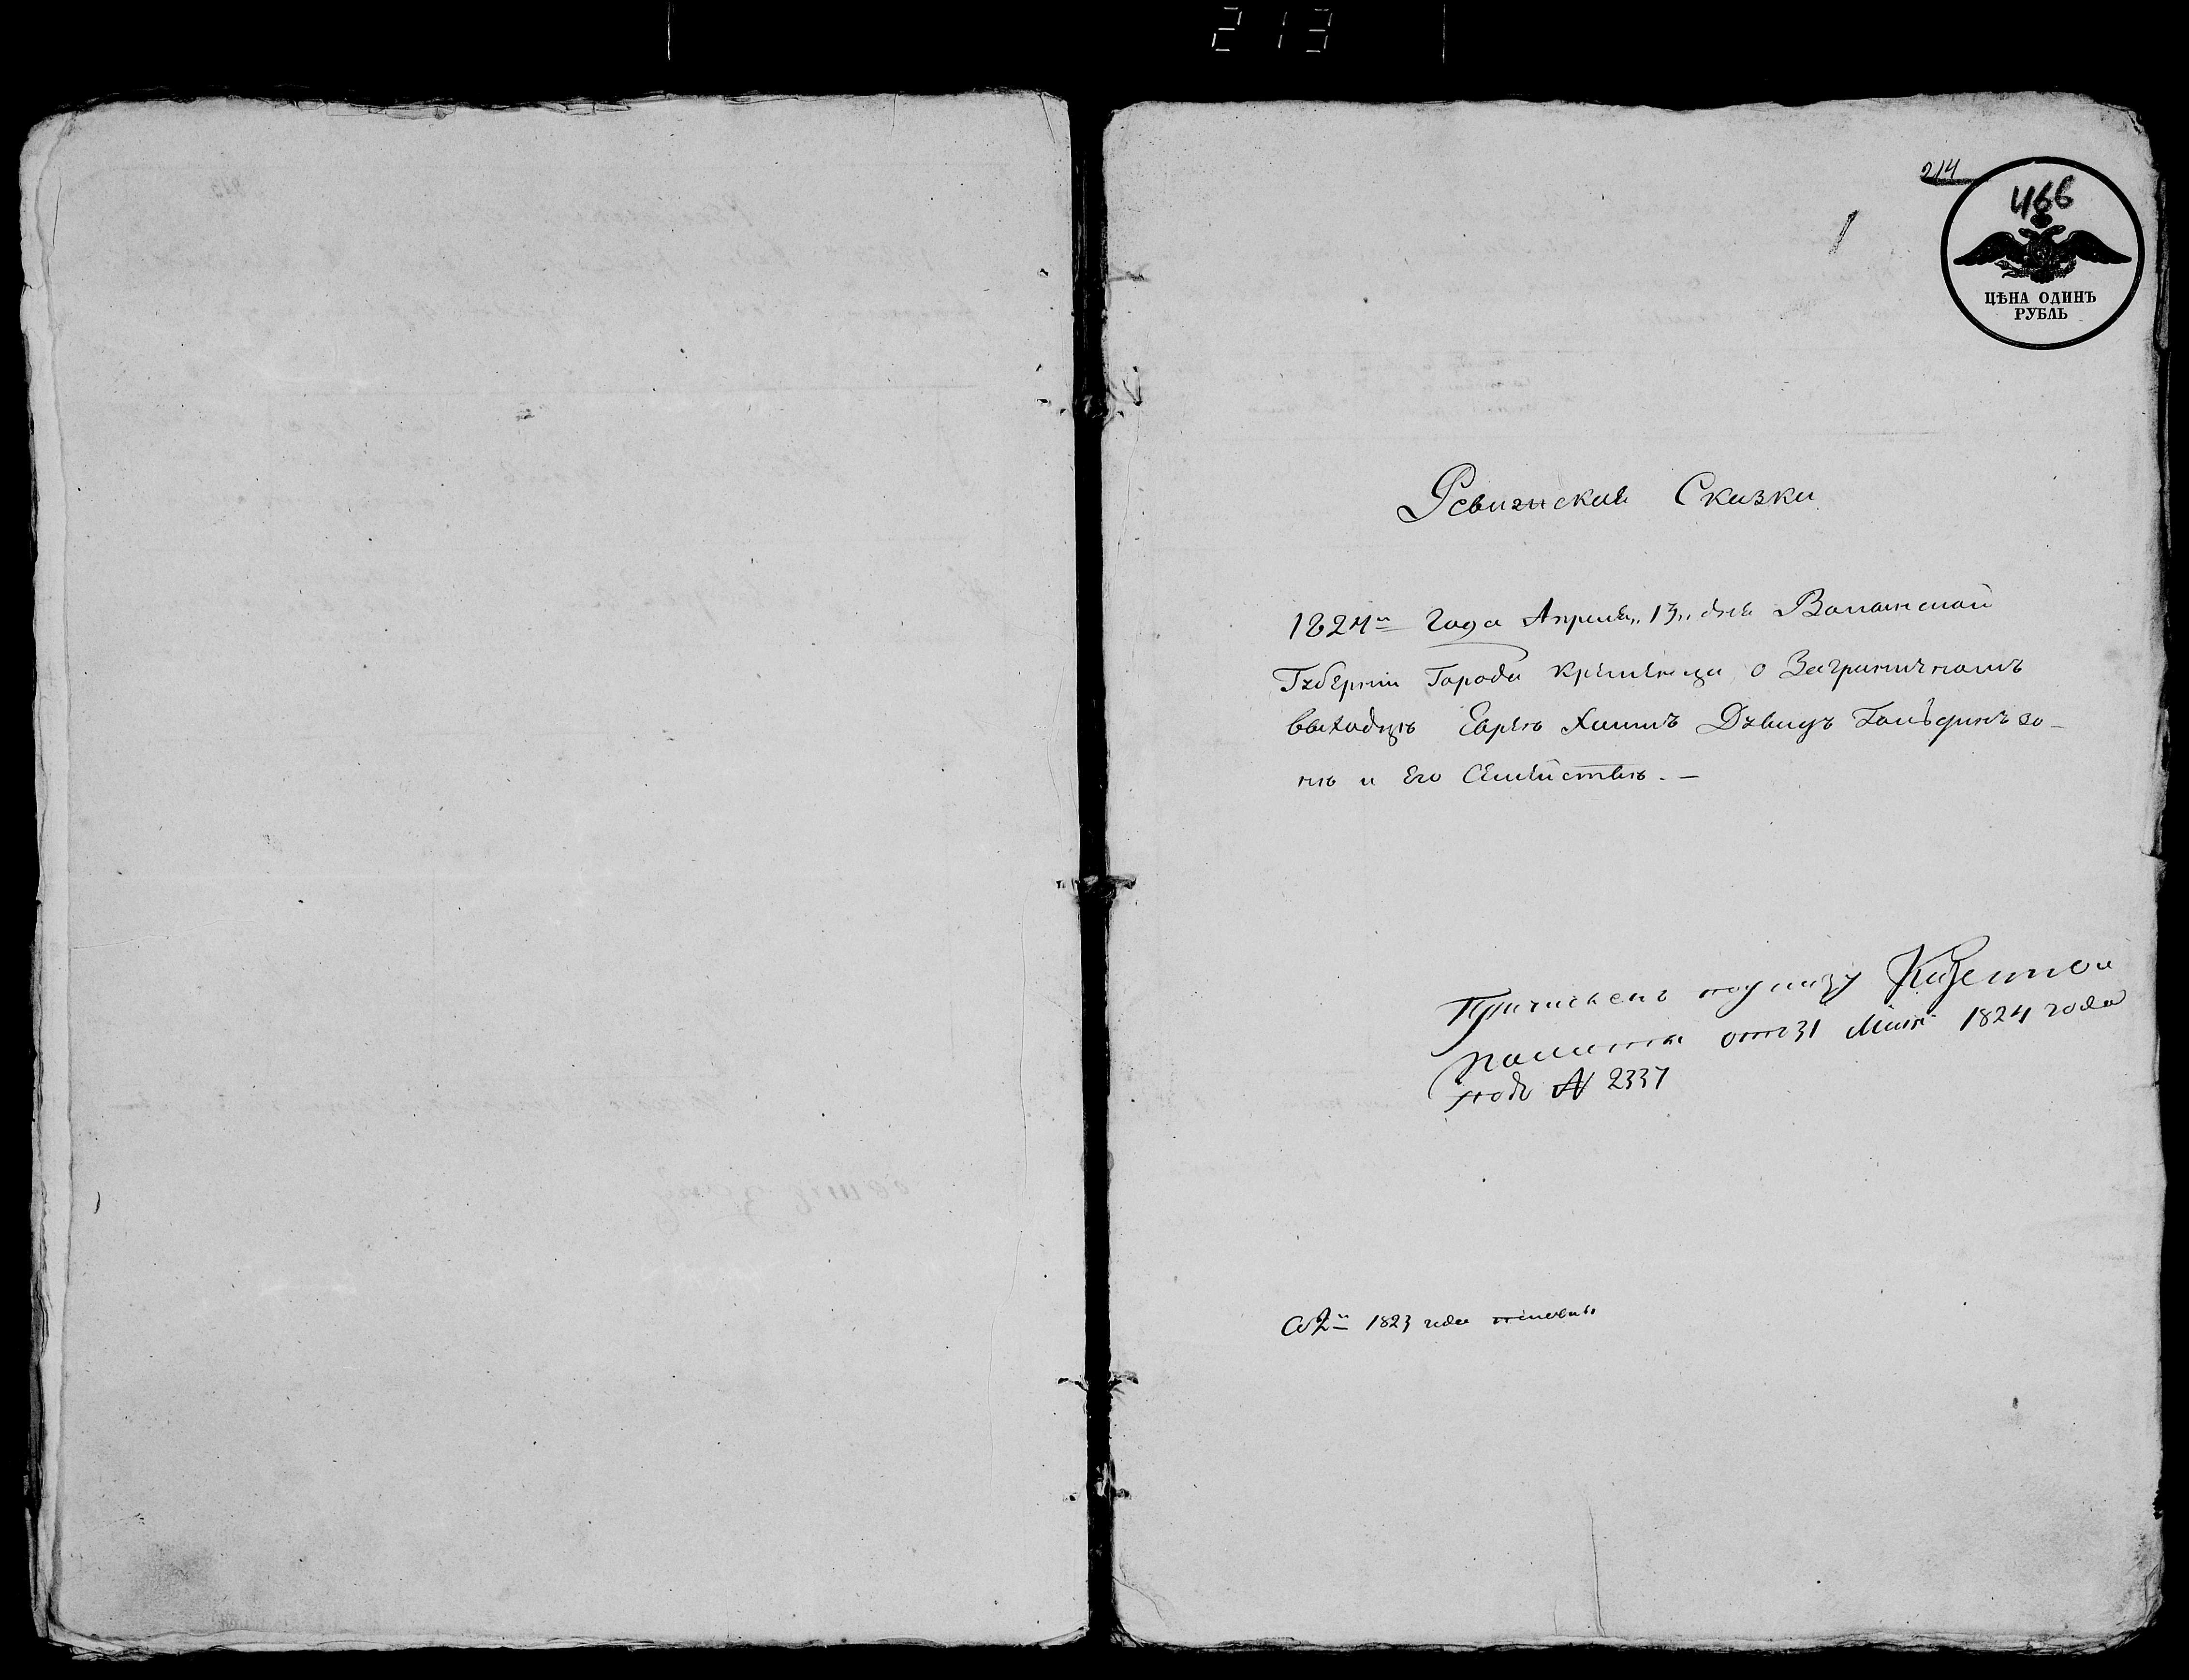 213
214
466
1
ЦѢНА ОДИНЪ
РУБЛЬ
Ревизская Сказка
1824го Года Апреля„ 13„ дня Волынской
Губернии Города Кременца о Заграничномъ
выходцѣ Еврѣѣ Хаимъ Дувидъ Гольдинъзо-
нѣ и Его Семействѣ. —
Причисленъ по указу Казенной
палаты отъ 31 Мая 1824 года
подъ N 2337
Со 2й 1823 года половины